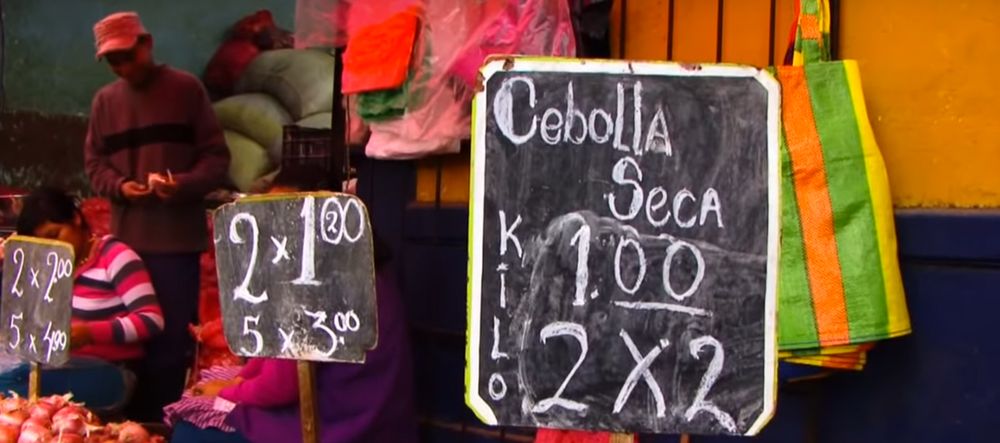 2 x 2.00
5 x 4.00
2 x 1.00
5 x 3.00
Cebolla
Seca
KiLo
1.00
2 x 2